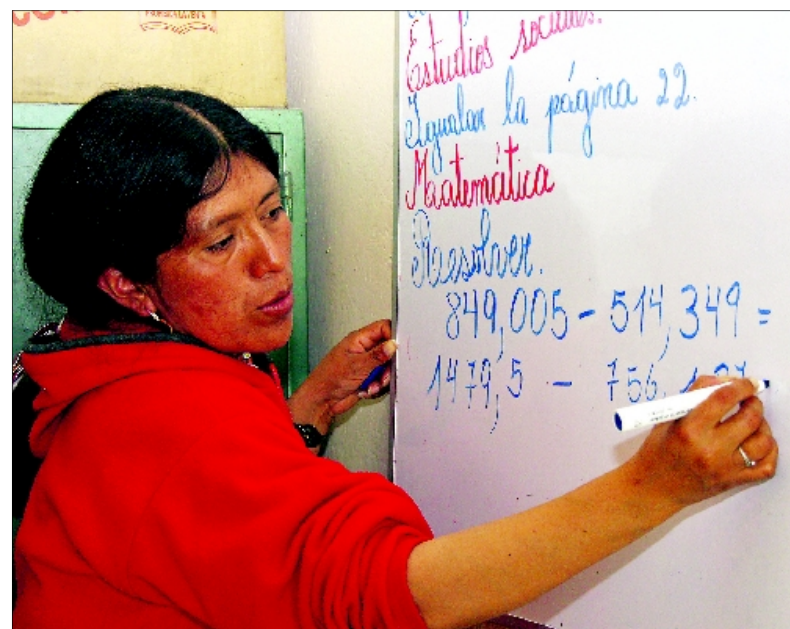 Estudios sociales.
Igualar la página 22.
Matemática
Resolver.
849,005 - 514,349 =
1479,5 - 756,